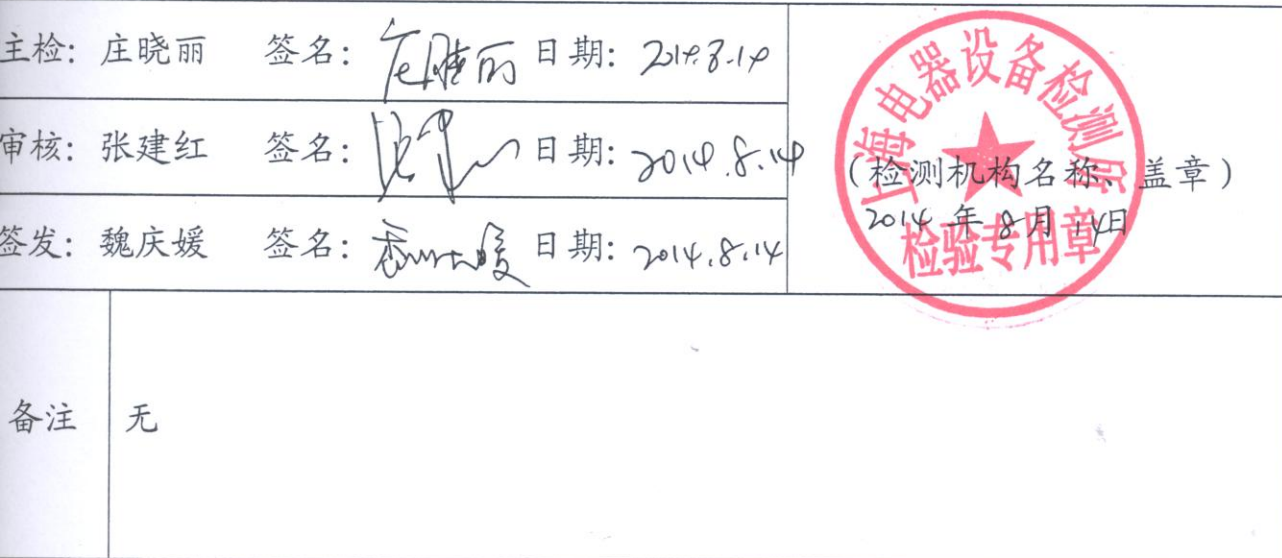 主检: 庄晓丽 签名: 庄晓丽 日期: 2014.8.14
审核: 张建红 签名: 日期: 2014.8.14
签发: 魏庆媛 签名: 日期: 2014.8.14
上海电器设备检测所
(检测机构名称、盖章)
2014年8月14日
检验专用章
备注 无